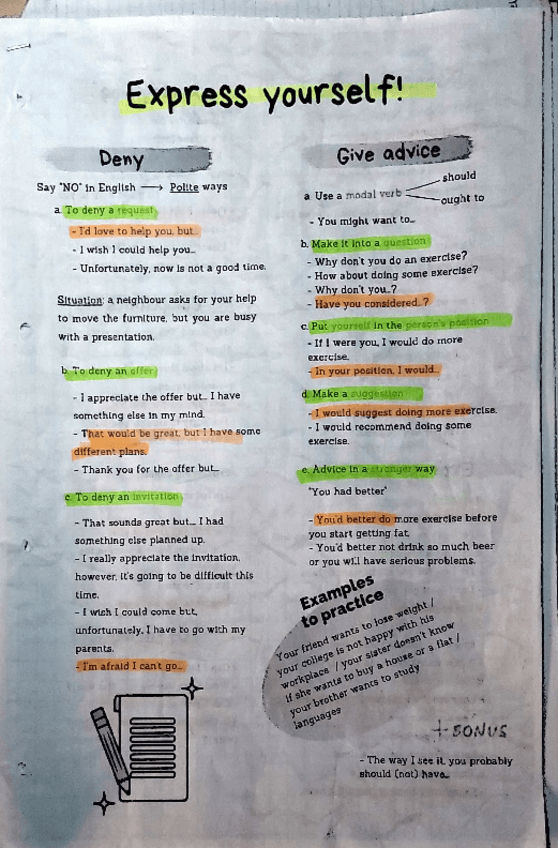 Express yourself!
Deny
Say "NO" in English → Polite ways
a. To deny a request
- I'd love to help you, but...
- I wish I could help you...
- Unfortunately, now is not a good time.
Situation: a neighbour asks for your help
to move the furniture, but you are busy
with a presentation.
b. To deny an offer
- I appreciate the offer but... I have
something else in my mind.
- That would be great, but I have some
different plans.
- Thank you for the offer but...
c. To deny an invitation
- That sounds great but... I had
something else planned up.
- I really appreciate the invitation,
however, it's going to be difficult this
time.
- I wish I could come but,
unfortunately, I have to go with my
parents.
- I'm afraid I can't go...
Give advice
a. Use a modal verb
should
ought to
- You might want to...
b. Make it into a question
- Why don't you do an exercise?
- How about doing some exercise?
- Why don't you...?
- Have you considered...?
c. Put yourself in the person's position
- If I were you, I would do more
exercise.
- In your position, I would...
d. Make a suggestion
- I would suggest doing more exercise.
- I would recommend doing some
exercise.
e. Advice in a stronger way
"You had better"
- You'd better do more exercise before
you start getting fat.
- You'd better not drink so much beer
or you will have serious problems.
Examples
to practice
Your friend wants to lose weight /
your college is not happy with his
workplace / your sister doesn't know
if she wants to buy a house or a flat /
your brother wants to study
languages
+ BONUS
- The way I see it, you probably
should (not) have...